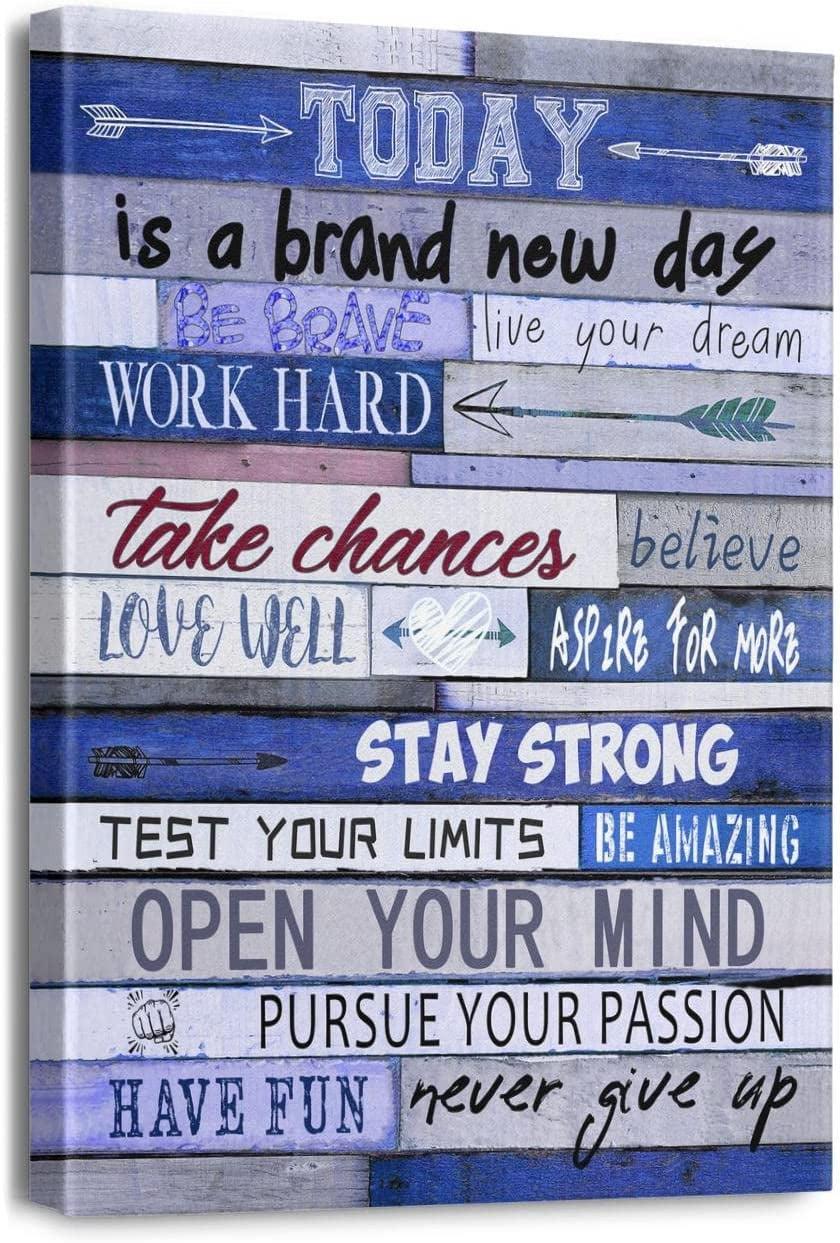 TODAY
is a brand new day
BE BRAVE live your dream
WORK HARD
take chances believe
LOVE WELL ASPIRE FOR MORE
STAY STRONG
TEST YOUR LIMITS BE AMAZING
OPEN YOUR MIND
PURSUE YOUR PASSION
HAVE FUN never give up